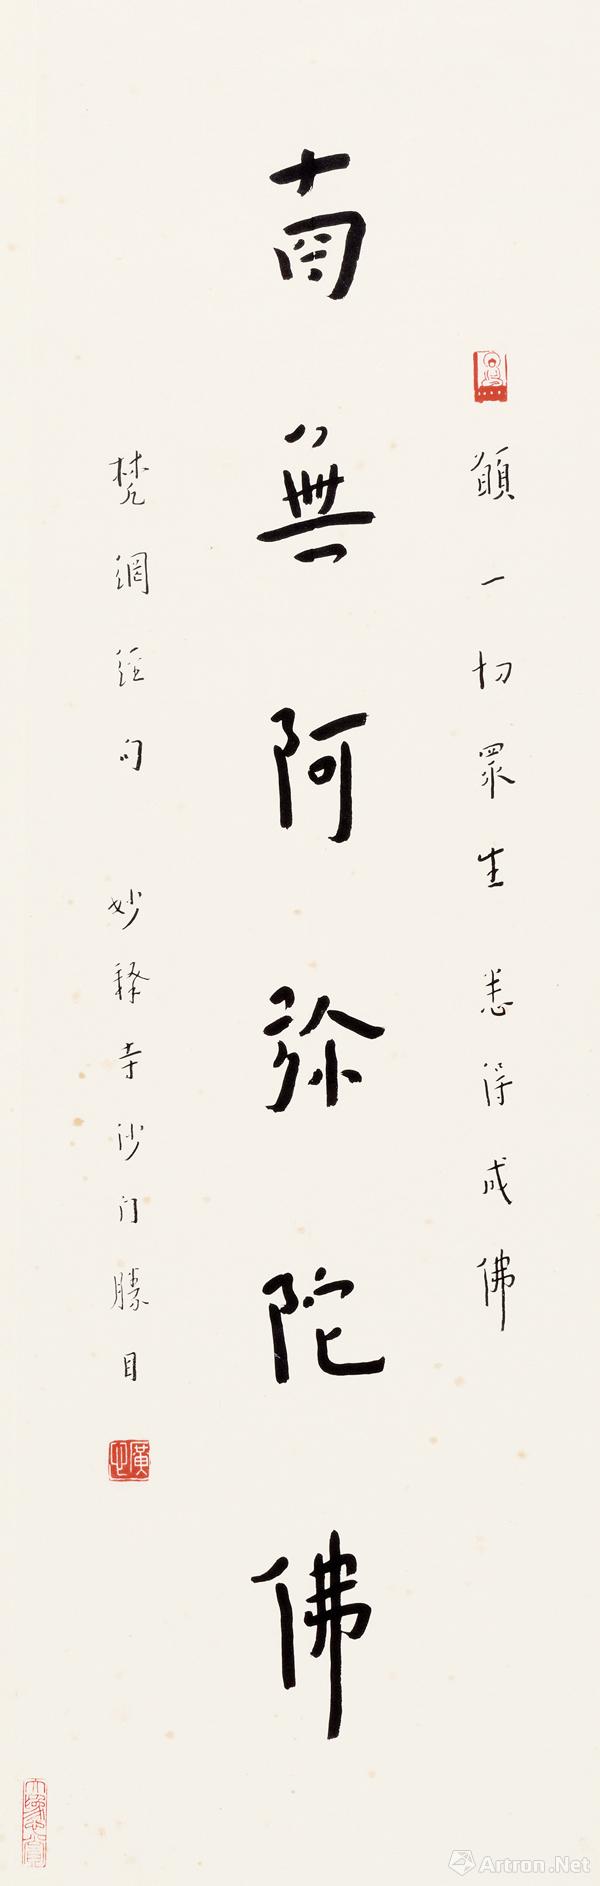 願一切眾生悉得成佛
南無阿弥陀佛
梵網經句 妙釋寺沙门勝目
Artron.Net